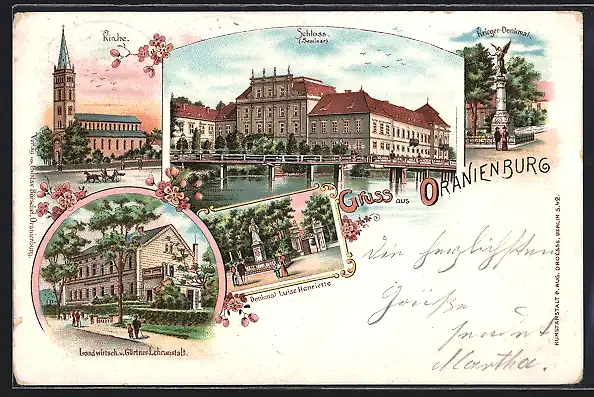 Kirche.
Schloss.
(Seminar)
Krieger-Denkmal.
Gruss aus ORANIENBURG
Denkmal Luise Henriette.
Landwirtsch. u. Gärtner-Lehranstalt.
Die herzlichsten
Grüße
sendet
Martha.
Verlag von Oranienburg.
KUNSTANSTALT P. AUG. DROESSE, BERLIN S. 42.